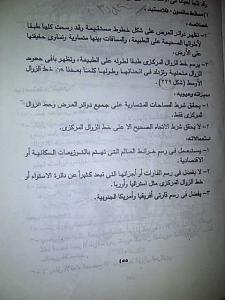 ١) مسقط سانسون - فلامستيد
خصائصه :
١- تظهر دوائر العرض على شكل خطوط مستقيمة وقد رسمت كلها طبقا
لأطوالها الصحيحة على الطبيعة، والمسافات بينها متساوية وتساوى حقيقتها
على الأرض.
٢- يرسم خط الزوال المركزى طبقا لطوله على الطبيعة، وتظهر باقى خطوط
الزوال منحنية وتزداد فى انحنائها وطولها كلما بعدنا عن خط الزوال
الأوسط (شكل ٢٢٩).
مميزاته وعيوبه :
١- يحقق شرط المساحات المتساوية على جميع دوائر العرض وخط الزوال
المركزى فقط.
٢- لا يحقق شرط الاتجاه الصحيح الا على خط الزوال المركزى.
استعمالاته :
١- يستعمل فى رسم خرائط العالم التى تهتم بالتوزيعات السكانية أو
الاقتصادية.
٢- لا يفضل فى رسم القارات أو أجزائها التى تبعد كثيراً عن دائرة الاستواء أو
خط الزوال المركزى مثل استراليا وأوربا.
٣- يفضل فى رسم قارتى أفريقيا وأمريكا الجنوبية.